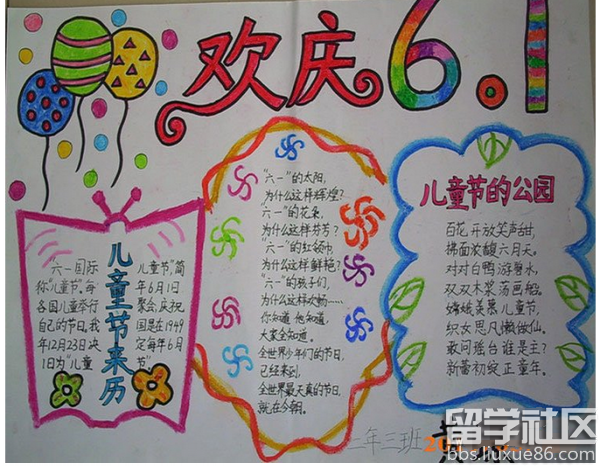 欢庆6.1
儿童节来历
"六一国际
称"儿童节",每
各国儿童举行
自己的节日,我
年12月23日决
1日为"儿童
儿童节"简
年6月1日
聚会,庆祝
国是在1949
定每年6月
节"
"六一"的太阳,
为什么这样辉煌?
"六一"的花朵,
为什么这样芬芳?
"六一"的红领巾
为什么这样鲜艳?
"六一"的孩子们,
为什么这样欢畅……
你知道 他知道,
大家全知道。
全世界少年们的节日,
已经来到,
全世界最天真的节日,
就在今朝。
儿童节的公园
百花开放笑声甜,
拂面浓馥六月天。
对对白鸭游碧水,
双双木桨荡画船。
嫦娥羡慕儿童节,
织女思凡懒做仙。
敢问瑶台谁是主?
新蕾初绽正童年。
二年三班
留学社区
bbs.liuxue86.com